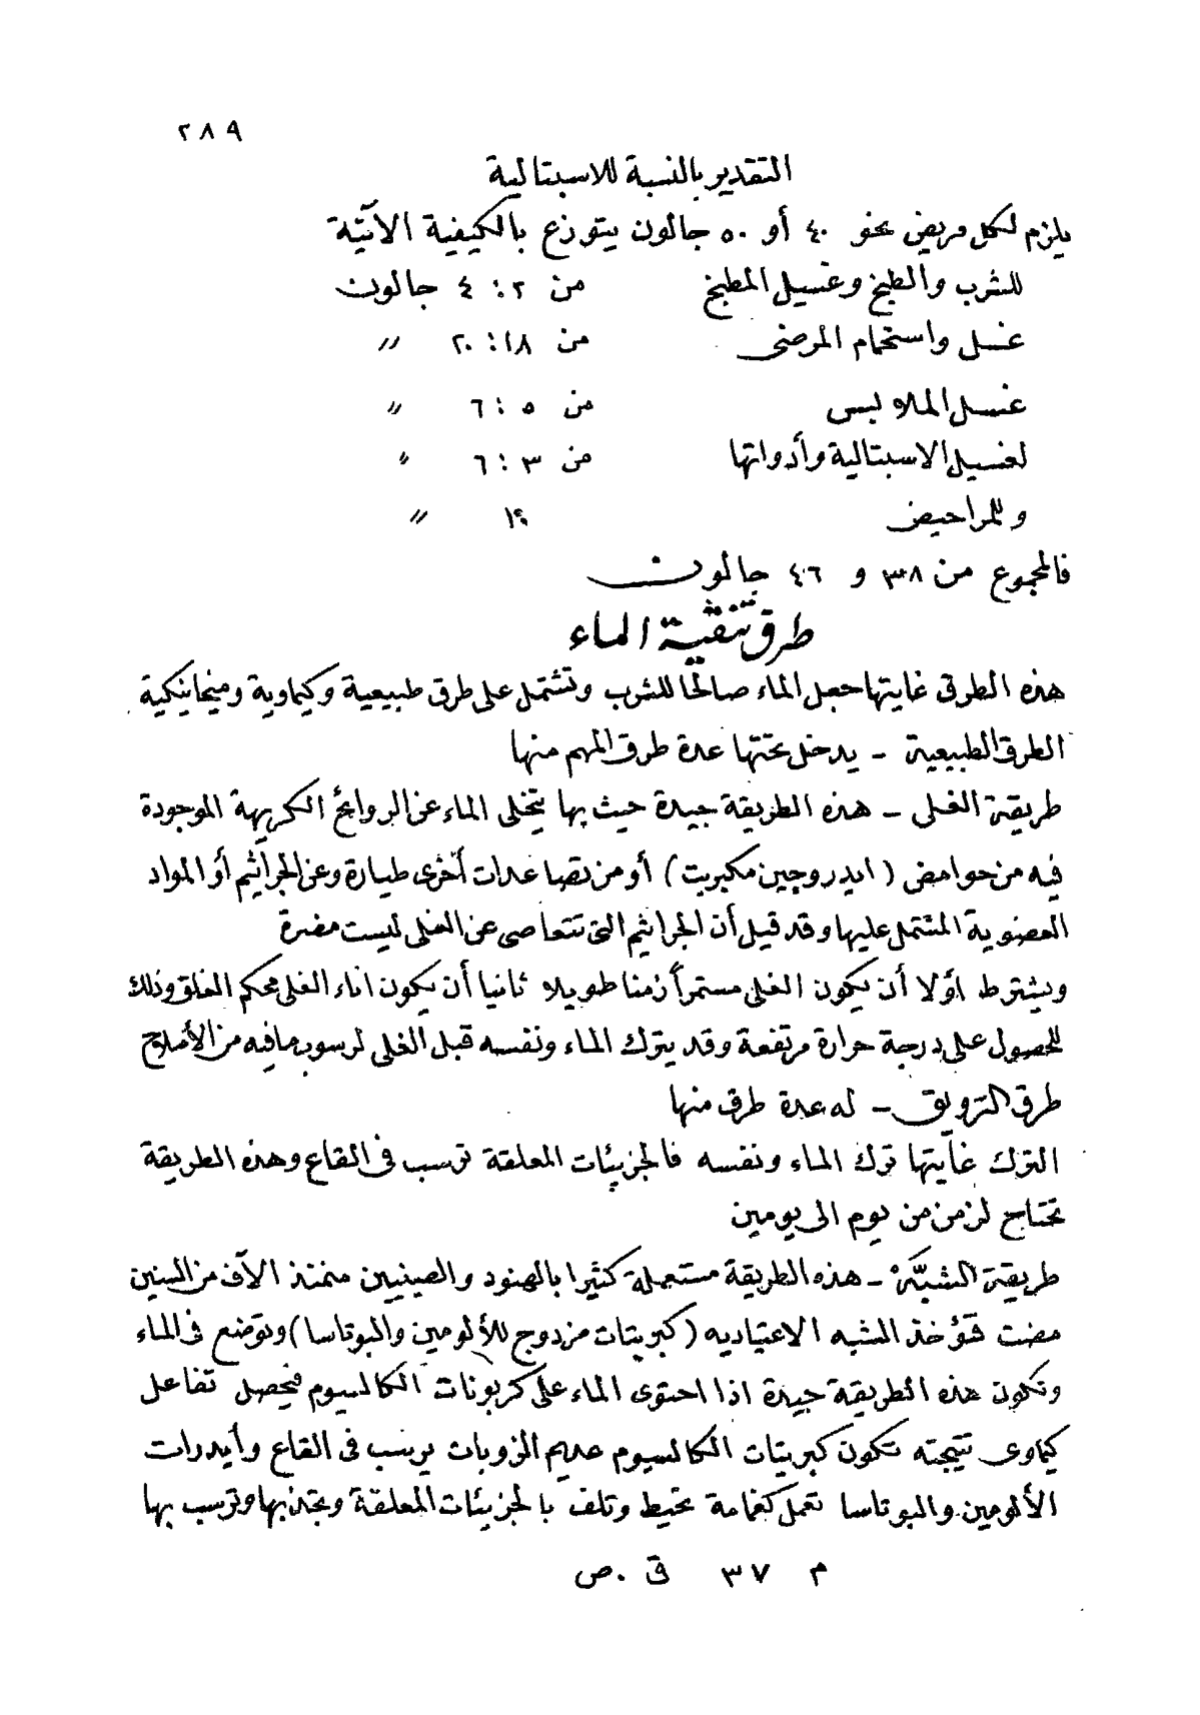 ٢٨٩
التقدير بالنسبة للاسبتالية
يلزم لكل مريض نحو ٤٠ أو ٥٠ جالون يتوزع بالكيفية الآتية
للشرب والطبخ وغسيل المطبخ من ٢ : ٤ جالون
غسل واستحمام المرضى من ١٨ : ٢٠〃
غسل الملابس من ٥ : ٦ 〃
لغسيل الاسبتالية وأدواتها من ٣ : ٦ 〃
وللمراحيض ١٠ 〃
فالمجموع من ٣٨ و ٤٦ جالون
طرق تنقية الماء
هذه الطرق غايتها جعل الماء صالحا للشرب وتشتمل على طرق طبيعية وكيماوية وميخانيكية
الطرق الطبيعية - يدخل تحتها عدة طرق المهم منها
طريقة الغلى - هذه الطريقة جيدة حيث بها يتخلى الماء عن الروائح الكريهة الموجودة
فيه من حوامض (ايدروجين مكبريت) أو من تصاعدات أخرى طيارة وعن الجراثيم أو المواد
العضوية المشتمل عليها وقد قيل أن الجراثيم التى تتعاصى عن الغلى ليست مضرة
ويشترط اوّلا أن يكون الغلى مستمراً زمنا طويلا ثانيا أن يكون اناء الغلى محكم الغلق وذلك
للحصول على درجة حرارة مرتفعة وقد يترك الماء ونفسه قبل الغلى لرسوب مافيه من الأملاح
طرق الترويق - له عدة طرق منها
الترك غايتها ترك الماء ونفسه فالجزيئات المعلقة ترسب فى القاع وهذه الطريقة
تحتاج لزمن من يوم الى يومين
طريقة الشبَّة - هذه الطريقة مستعملة كثيرا بالهنود والصينيين منمنذ الآف من السنين
مضت فتؤخذ الشبه الاعتياديه (كبريتات مزدوج للألومين والبوتاسا) وتوضع فى الماء
وتكون هذه الطريقة جيدة اذا احتوى الماء على كربونات الكالسيوم فيحصل تفاعل
كيماوى نتيجته تكون كبريتات الكالسيوم عديم الذوبان يرسب فى القاع وأيدرات
الألومين والبوتاسا تعمل كغمامة تحيط وتلف بالجزيئات المعلقة وتجذبها وترسب بها
م ٣٧ ق . ص